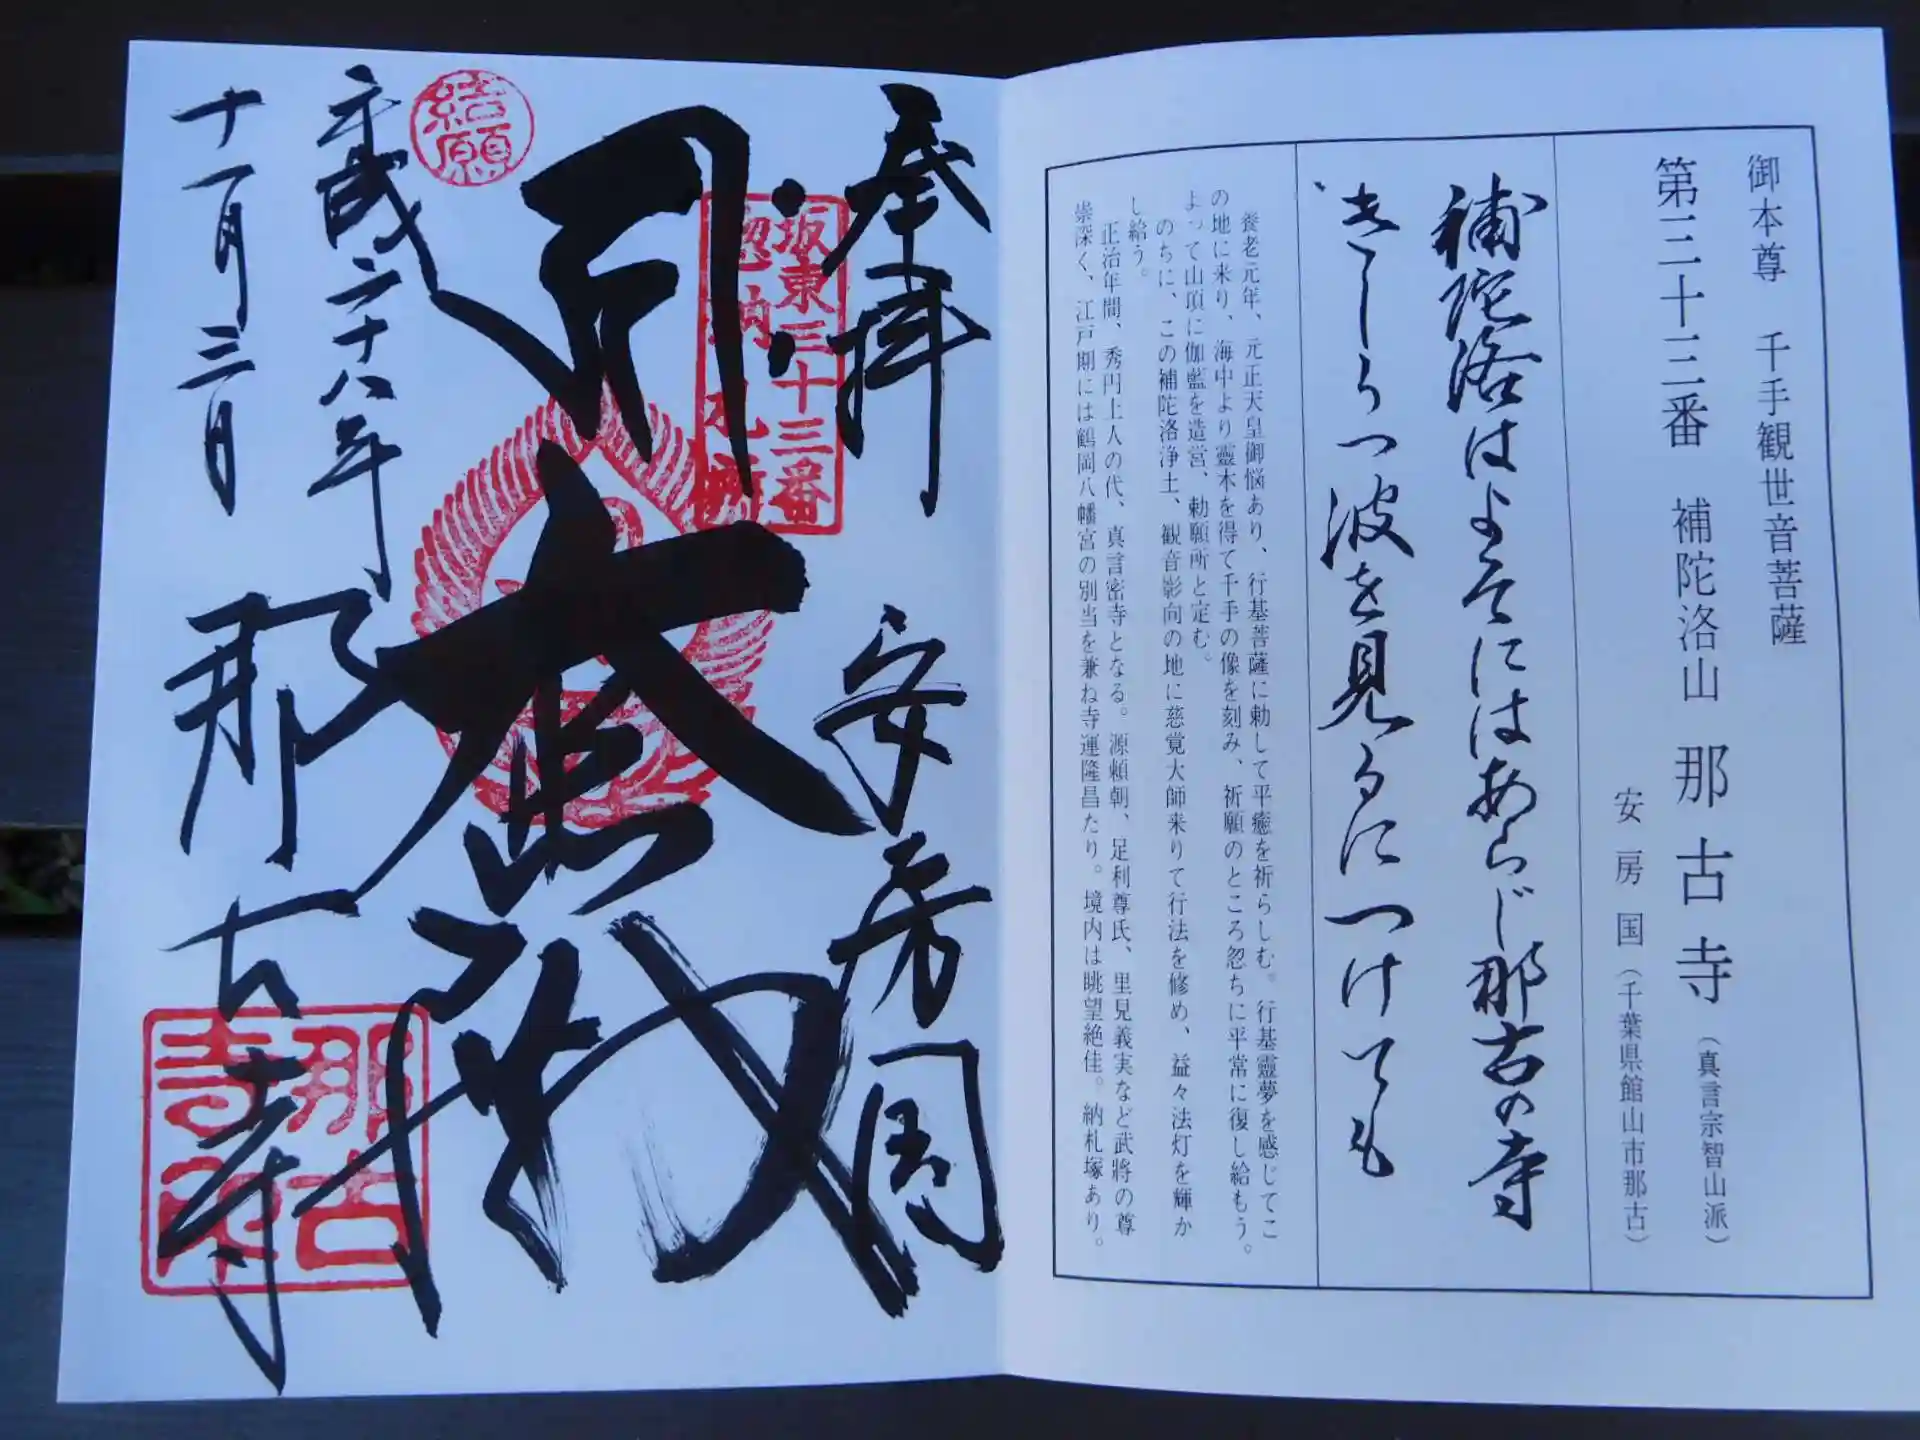 御本尊　千手観世音菩薩
第三十三番　補陀洛山　那古寺（真言宗智山派）
安房国（千葉県館山市那古）
補陀洛はよそにはあらじ那古の寺
きしうつ波を見るにつけても
養老元年、元正天皇御悩あり、行基菩薩に勅して平癒を祈らしむ。行基靈夢を感じてこ
の地に来り、海中より靈木を得て千手の像を刻み、祈願のところ忽ちに平常に復し給もう。
よって山頂に伽藍を造営、勅願所と定む。
のちに、この補陀洛浄土、観音影向の地に慈覚大師来りて行法を修め、益々法灯を輝か
し給う。
正治年間、秀円上人の代、真言密寺となる。源頼朝、足利尊氏、里見義実など武將の尊
崇深く、江戸期には鶴岡八幡宮の別当を兼ね寺運隆昌たり。境内は眺望絶佳。納札塚あり。
奉拝
安房国
坂東三十三番
惣納札所
結願
平成二十八年
十一月三日
那古寺
那古
寺印